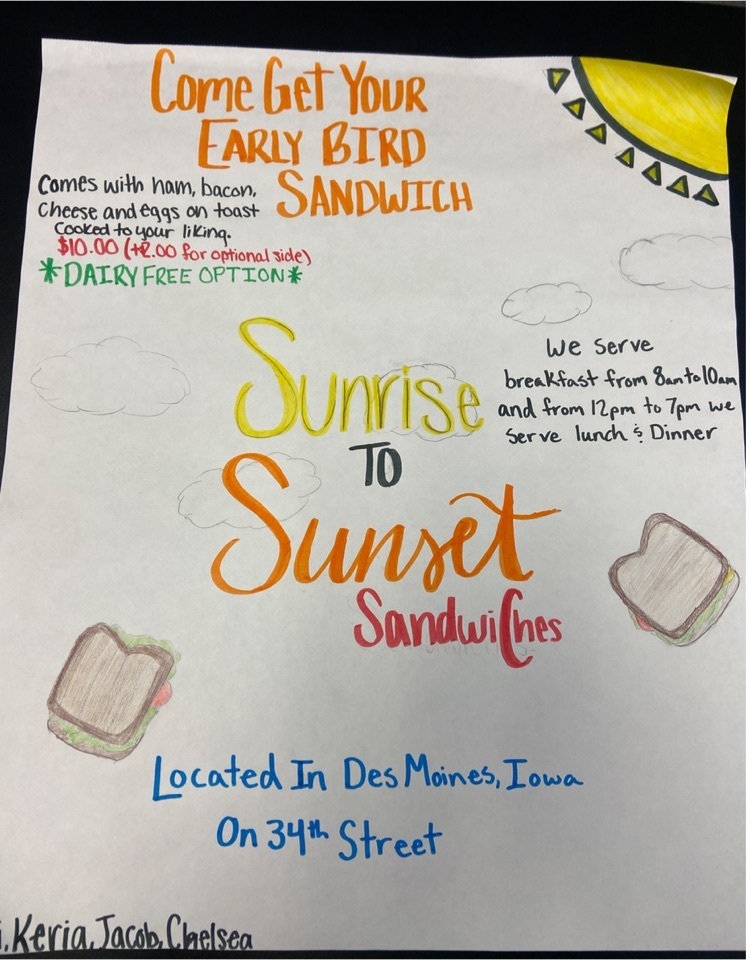 Come Get Your
Early Bird
Sandwich
Comes with ham, bacon,
Cheese and eggs on toast
Cooked to your liking.
$10.00 (+2.00 for optional side)
*DAIRY FREE OPTION*
We serve
breakfast from 8am to 10am
and from 12pm to 7pm we
serve lunch & Dinner
Sunrise
To
Sunset
Sandwiches
Located In Des Moines, Iowa
On 34th Street
Keria, Jacob, Chelsea